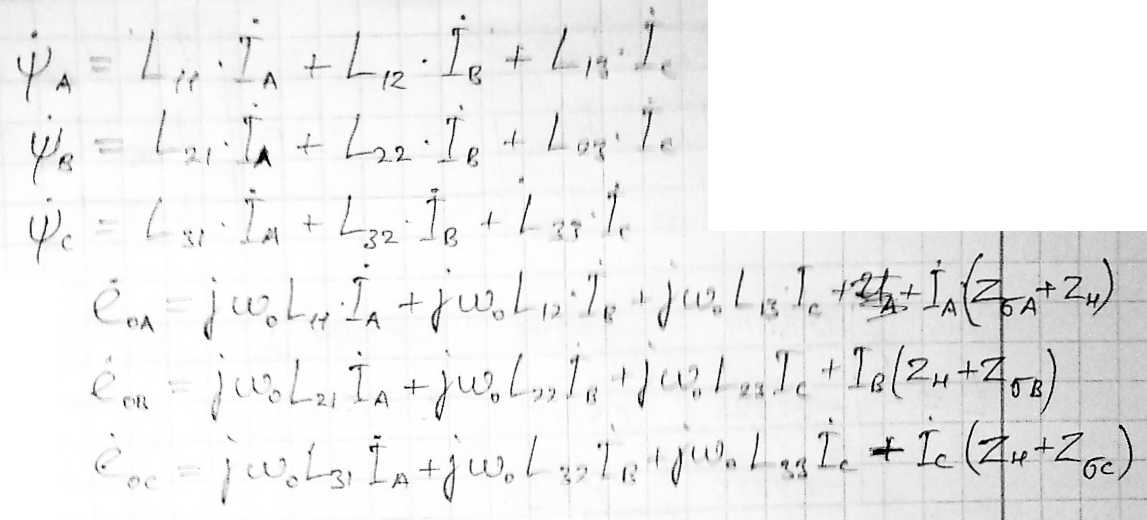 ψ̇_A = L_11 · İ_A + L_12 · İ_B + L_13 · İ_c
ψ̇_B = L_21 · İ_A + L_22 · İ_B + L_23 · İ_c
ψ̇_C = L_31 · İ_A + L_32 · İ_B + L_33 · İ_c
ė_0A = jω_0 L_11 · İ_A + jω_0 L_12 · İ_B + jω_0 L_13 · I_c + İ_A · (Z_σA + Z_н)
ė_0B = jω_0 L_21 İ_A + jω_0 L_22 İ_B + jω_0 L_23 I_c + I_B (Z_н + Z_σB)
ė_0C = jω_0 L_31 İ_A + jω_0 L_32 İ_B + jω_0 L_33 İ_c + İ_c (Z_н + Z_σC)